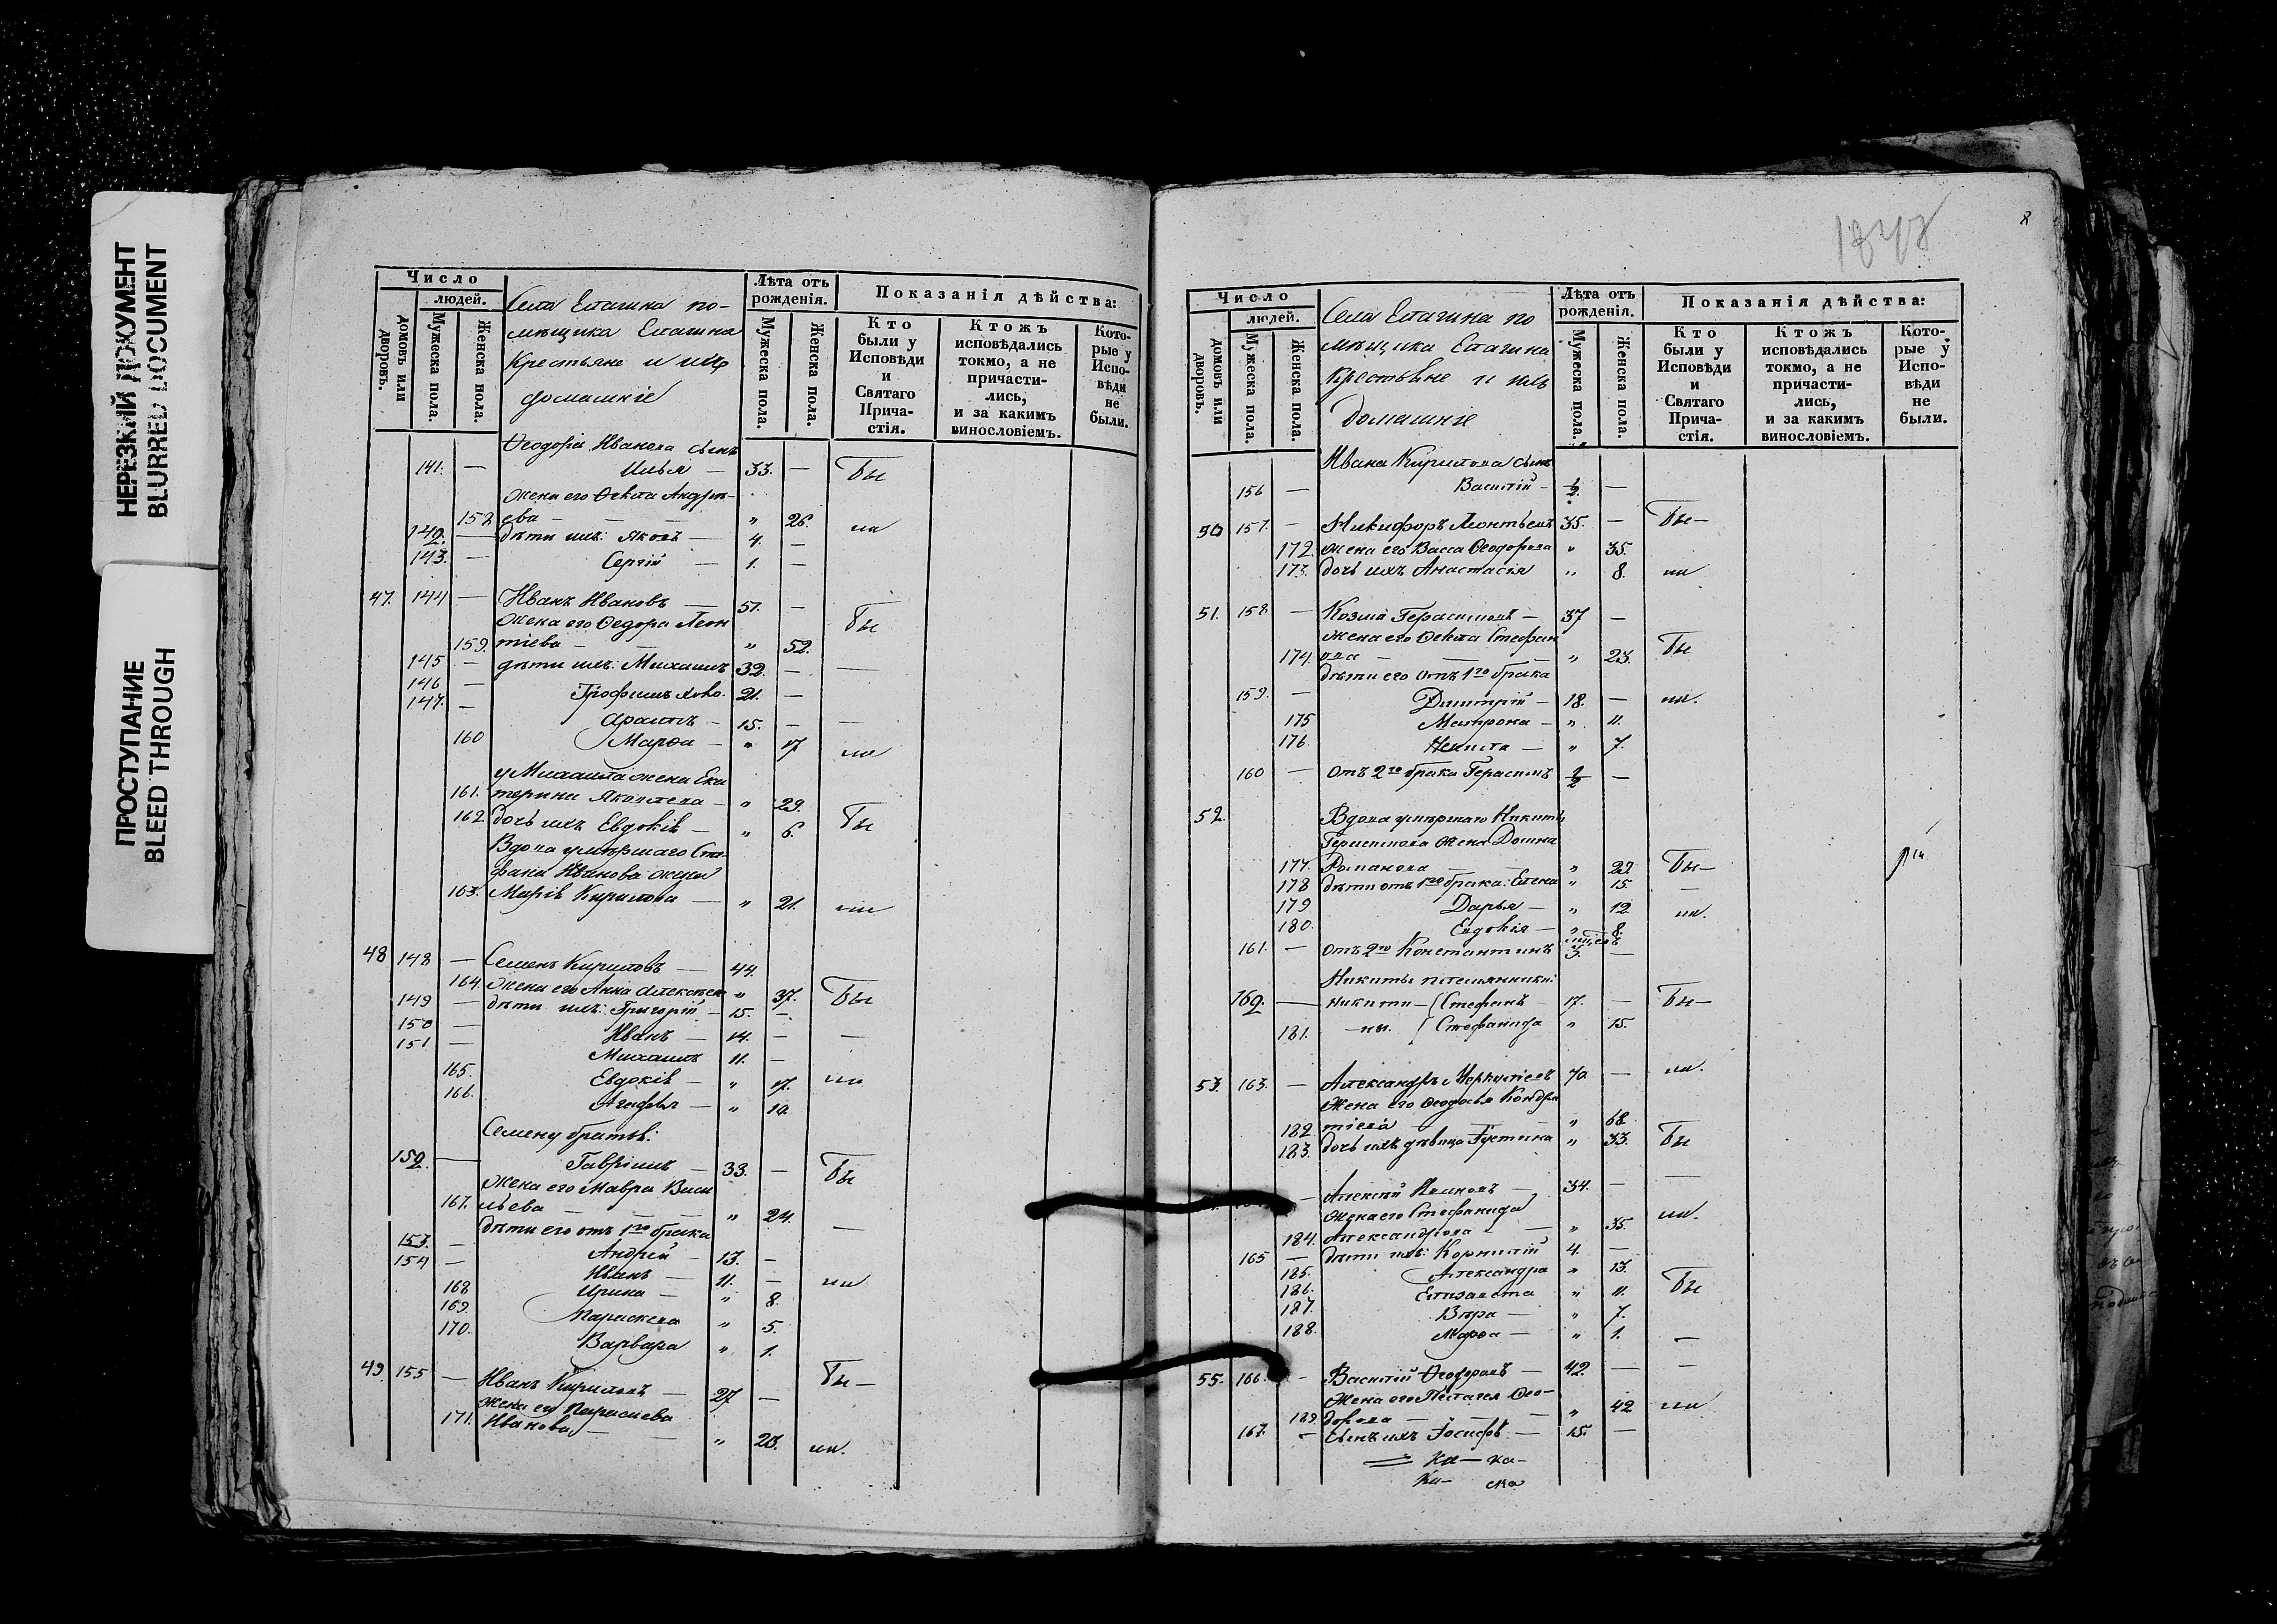 НЕРЕЗКИЙ ДОКУМЕНТ
BLURRED DOCUMENT
ПРОСТУПАНИЕ
BLEED THROUGH
Число
людей.
домовъ или дворовъ.
Мужеска пола.
Женска пола.
Села Елагина по-
мѣщика Елагина
крестьяне и ихъ
домашніе
Лѣта отъ рожденія.
Мужеска пола.
Женска пола.
Показанія дѣйства:
Кто были у Исповѣди и Святаго Прича-стія.
Ктожъ исповѣдались токмо, а не причасти-лись, и за какимъ винословіемъ.
Кото-рые у Испо-вѣди не были.
Ѳеодора Иванова сынъ
141. — Илья — 33. — Бы
жена его Ѳекла Андре-
158 ева — — — " 26. ли
142. — дѣти ихъ: Яковъ — 4. —
143. — Сергій — 1. —
47. 144 — Иванъ Ивановъ — 51. —
жена его Ѳедора Леон Бы
159. тіева — — " 52.
145 — дѣти ихъ: Михаилъ 32. — —
146 — Трофимъ 21. —
147. — 15. — —
160 Марѳа — " 17 ли
у Михаила жена Ека
161. терина Яковлева — " 29.
162 дочь ихъ Евдокія — " 6. Бы
Вдова умершаго Сте-
фана Иванова жена
163. Марія Кирилова — " 21. ли
48 148 — Семенъ Кириловъ — 44.
164. жена его Анна Алексѣева " 37. Бы
149 — дѣти ихъ: Григорій — 15. —
150 — Иванъ — 14. — —
151 — Михаилъ 11. —
165. Евдокія — " 17. ли
166. Агафья — " 10
Семену братья:
152. — Гавріилъ — 33. — Бы
жена его Мавра Васи
167. льева — — — " 24.
дѣти его отъ 1го брака —
153. — Андрей — 13. —
154 — Иванъ — 11. — ли
168 Ирина — " 8.
169. Параскева " 5.
170. Варвара " 1.
49. 155 — Иванъ Кириловъ — 27 — Бы —
жена его Параскева
171. Иванова — — " 23. ли.
1847
8
Число
людей.
домовъ или дворовъ.
Мужеска пола.
Женска пола.
Села Елагина по
мѣщика Елагина
крестьяне и ихъ
домашніе
Лѣта отъ рожденія.
Мужеска пола.
Женска пола.
Показанія дѣйства:
Кто были у Исповѣди и Святаго Прича-стія.
Ктожъ исповѣдались токмо, а не причасти-лись, и за какимъ винословіемъ.
Кото-рые у Испо-вѣди не были.
Ивана Кирилова сынъ
156 — Василій — ½. —
50 157. — Никифоръ Леонтьевъ 35. — Бы —
172. жена его Васса Ѳеодорова " 35.
173. дочь ихъ Анастасія " 8. ли
51. 158 — Козма Герасимовъ — 37 —
жена его Ѳекла Стефан
174. ова — — — " 23. Бы
дѣти его отъ 1го брака
159. — Димитрій — 18. — ли.
175 Матрона — " 11.
176. — " 7.
160 — отъ 2го брака Герасимъ ½ —
52. Вдова умершаго Никиты
Герасимова жена Домна
177. Романова — " 22. Бы —
178 дѣти отъ 1го брака: Елена " 15. —
179 Дарья — " 12. ли.
180. Евдокія — " 8.
161. — отъ 2го Константинъ 3. —
Никиты племянники:
162. — Никити — Стефанъ — 17. — Бы —
181. — ны. Стефанида " 15.
53. 163. — Александръ 70 — ли.
жена его Ѳеодосья Кондра
182. тіева — — " 68
183. дочь ихъ дѣвица Іустина " 33. Бы
— Алексѣй — 34. — —
жена его Стефанида
184. Александрова — — " 35. ли.
165 — дѣти ихъ: Корнилій 4. —
185. Александра " 13.
186. Елизавета " 11. Бы
187. Вѣра — " 7.
188. Марѳа — " 1. —
55. 166. — Василій Ѳеодоровъ — 42. — —
жена его Пелагея Ѳео-
189. дорова — — — " 42 ли
167. — сынъ ихъ Іосифъ — 15. —
Ка — ка —
Ка — ска